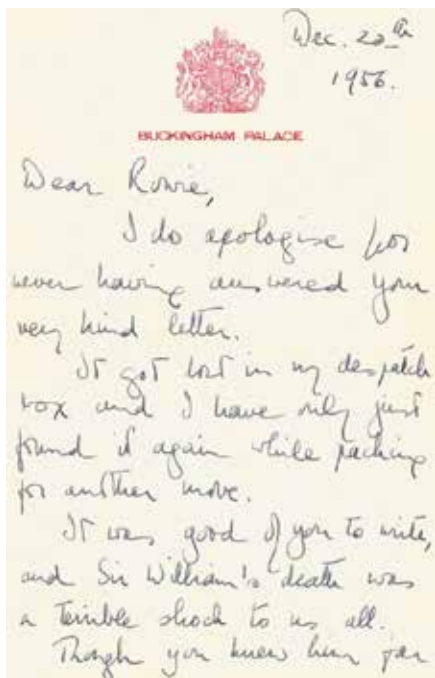 Dec. 22nd
1956.
BUCKINGHAM PALACE
Dear Rowie,
I do apologise for
never having answered your
very kind letter.
It got lost in my despatch
box and I have only just
found it again while packing
for another move.
It was good of you to write,
and Sir William's death was
a terrible shock to us all.
Though you knew him far